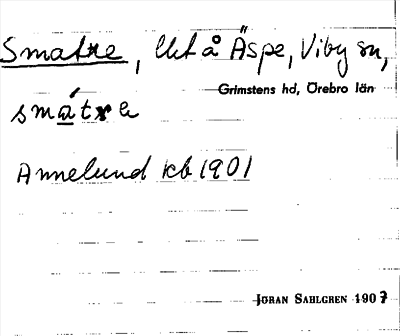 Smatre, lht å Äspe, Viby sn,
Grimstens hd, Örebro län
smátre
Annelund kb 1901
JÖRAN SAHLGREN 1907